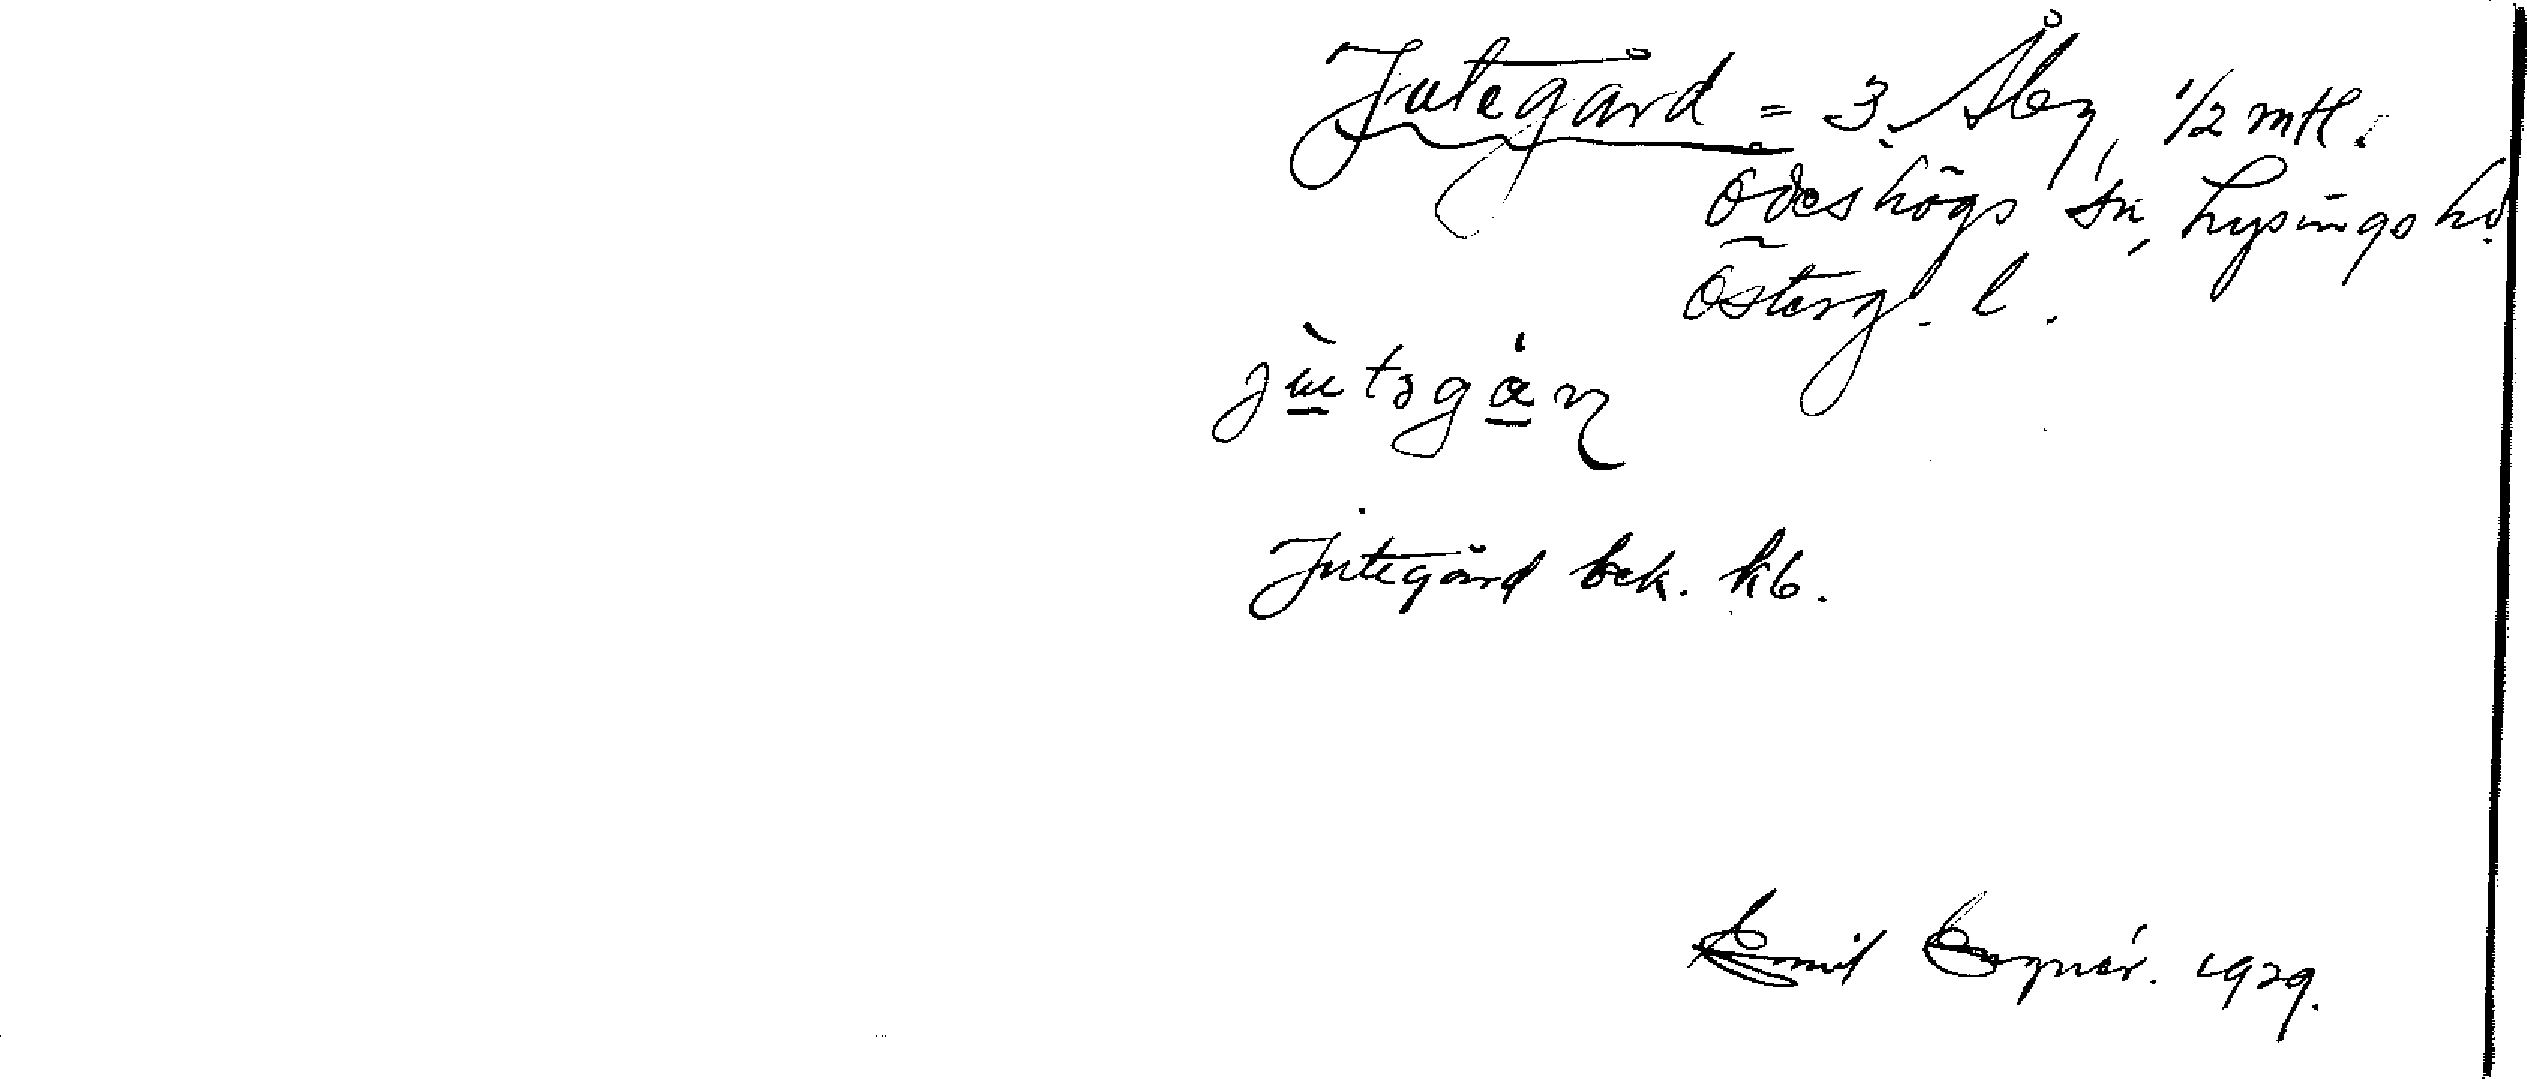 Jutegård = 3. Åby, 1/2 mtl.
Ödeshögs sn, Lysings hd.
Österg. l.
Jutegård bek. kb.
Emil 1929.